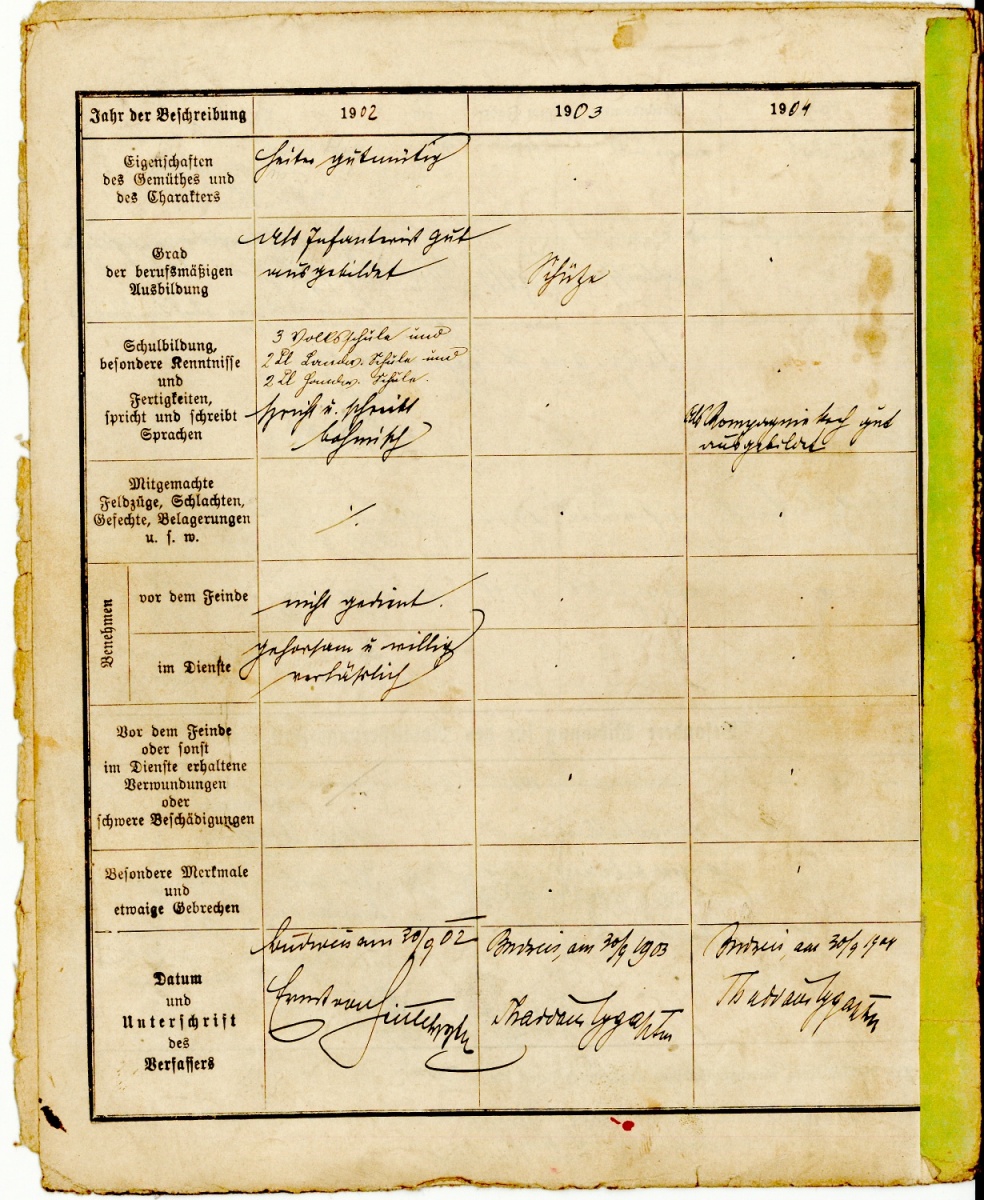 Jahr der Beschreibung
1902
1903
1904
Eigenschaften
des Gemüthes und
des Charakters
heiter gutmütig
Grad
der berufsmäßigen
Ausbildung
Als Infanterist gut
ausgebildet
Schütze
Schulbildung,
besondere Kenntnisse
und
Fertigkeiten,
spricht und schreibt
Sprachen
3 Volksschule und
2 Kl Landw. Schule und
2 Kl Handw. Schule.
spricht u. schreibt
böhmisch
Als Kompagniekoch gut
ausgebildet
Mitgemachte
Feldzüge, Schlachten,
Gefechte, Belagerungen
u. s. w.
Benehmen
vor dem Feinde
nicht gedient.
im Dienste
gehorsam u willig
verläßlich
Vor dem Feinde
oder sonst
im Dienste erhaltene
Verwundungen
oder
schwere Beschädigungen
Besondere Merkmale
und
etwaige Gebrechen
Datum
und
Unterschrift
des
Verfassers
Budweis am 30/9 02
Ernst von
Budweis, am 30/9 1903
Thaddäus
Budweis, am 30/9 1904
Thaddäus